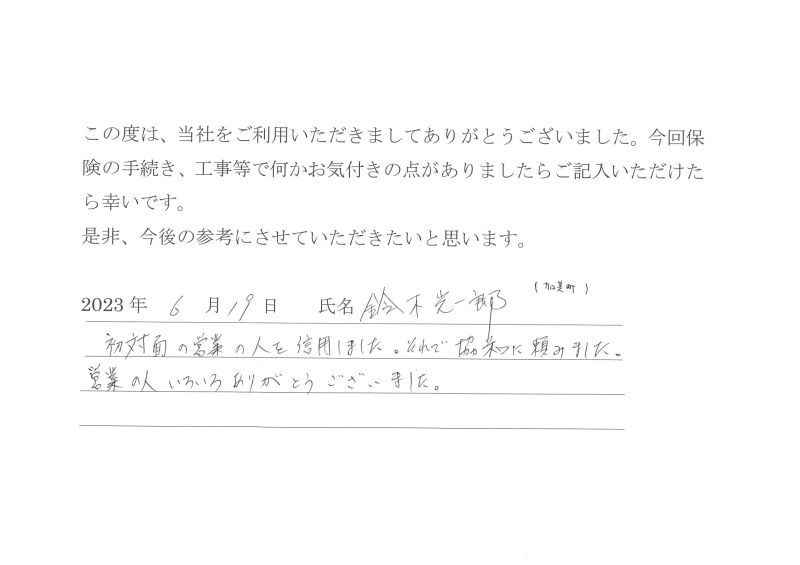 この度は、当社をご利用いただきましてありがとうございました。今回保
険の手続き、工事等で何かお気付きの点がありましたらご記入いただけた
ら幸いです。
是非、今後の参考にさせていただきたいと思います。
(加美町)
2023年 6月19日 氏名 鈴木光一郎
初対面の営業の人を信用しました。それで協和に頼みました。
営業の人いろいろありがとうございました。